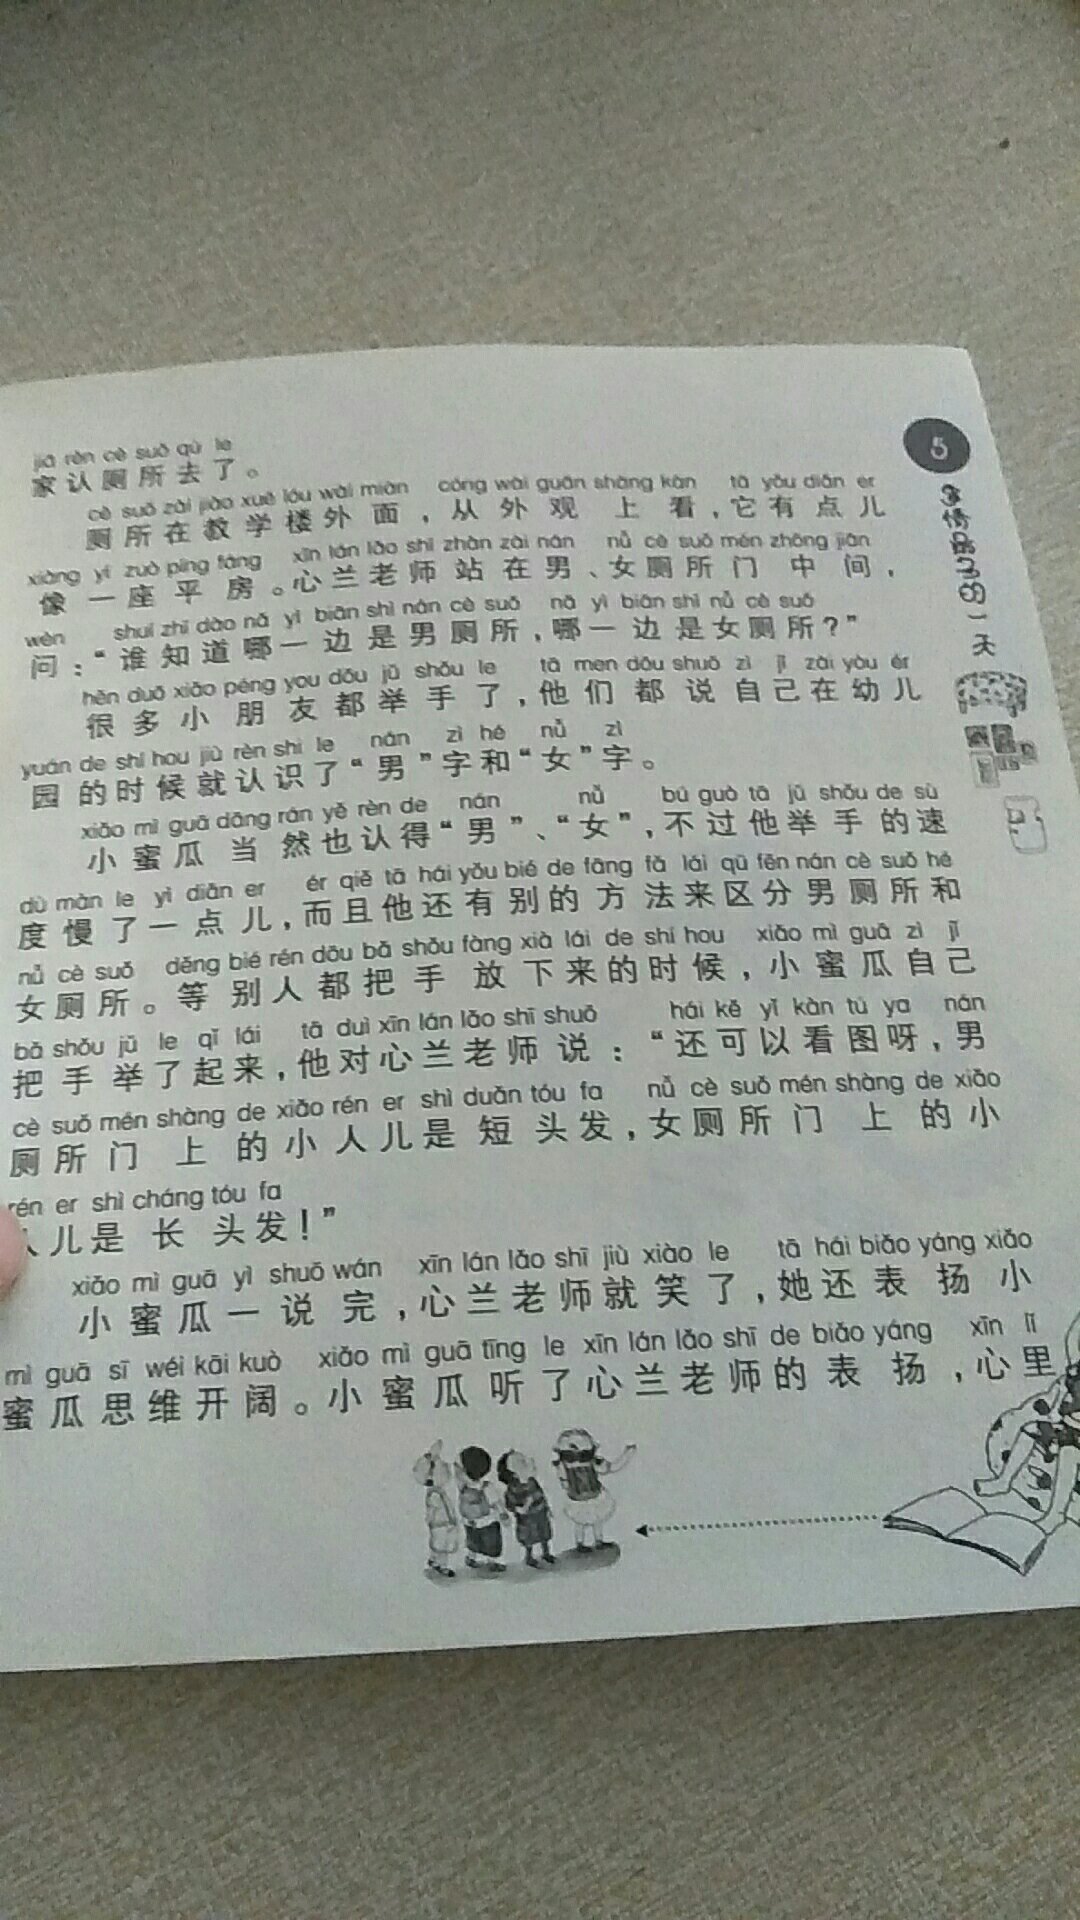 jiā rèn cè suǒ qù le
家认厕所去了。
cè suǒ zài jiào xué lóu wài miàn cóng wài guān shàng kàn tā yǒu diǎn er
厕所在教学楼外面，从外观上看，它有点儿
xiàng yí zuò píng fáng xīn lán lǎo shī zhàn zài nán nǚ cè suǒ mén zhōng jiān
像一座平房。心兰老师站在男、女厕所门中间，
wèn shuí zhī dào nǎ yì biān shì nán cè suǒ nǎ yì biān shì nǚ cè suǒ
问：“谁知道哪一边是男厕所，哪一边是女厕所？”
hěn duō xiǎo péng you dōu jǔ shǒu le tā men dōu shuō zì jǐ zài yòu ér
很多小朋友都举手了，他们都说自己在幼儿
yuán de shí hou jiù rèn shi le nán zì hé nǚ zì
园的时候就认识了“男”字和“女”字。
xiǎo mì guā dāng rán yě rèn de nán nǚ bú guò tā jǔ shǒu de sù
小蜜瓜当然也认得“男”、“女”，不过他举手的速
dù màn le yì diǎn er ér qiě tā hái yǒu bié de fāng fǎ lái qū fēn nán cè suǒ hé
度慢了一点儿，而且他还有别的方法来区分男厕所和
nǚ cè suǒ děng bié rén dōu bǎ shǒu fàng xià lái de shí hou xiǎo mì guā zì jǐ
女厕所。等别人都把手放下来的时候，小蜜瓜自己
bǎ shǒu jǔ le qǐ lái tā duì xīn lán lǎo shī shuō hái kě yǐ kàn tú ya nán
把手举了起来，他对心兰老师说：“还可以看图呀，男
cè suǒ mén shàng de xiǎo rén er shì duǎn tóu fa nǚ cè suǒ mén shàng de xiǎo
厕所门上的小人儿是短头发，女厕所门上的小
rén er shì cháng tóu fa
人儿是长头发！”
xiǎo mì guā yì shuō wán xīn lán lǎo shī jiù xiào le tā hái biǎo yáng xiǎo
小蜜瓜一说完，心兰老师就笑了，她还表扬小
mì guā sī wéi kāi kuò xiǎo mì guā tīng le xīn lán lǎo shī de biǎo yáng xīn lǐ
蜜瓜思维开阔。小蜜瓜听了心兰老师的表扬，心里
5
的一天